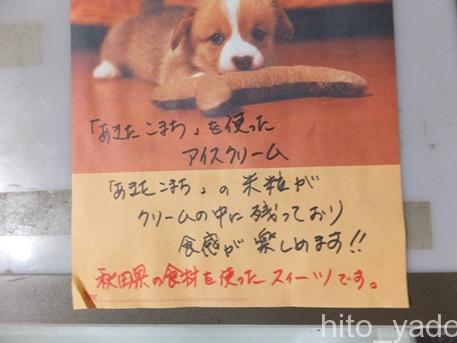 「あきたこまち」を使った
アイスクリーム
「あきたこまち」の米粒が
クリームの中に残っており
食感が楽しめます!!
秋田県の食材を使ったスイーツです。
hito_yado